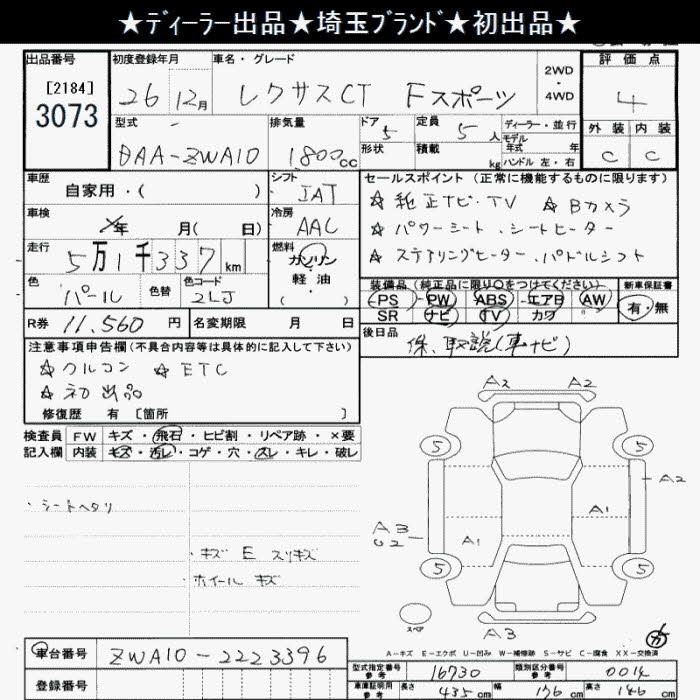 ★ディーラー出品★埼玉ブランド★初出品★
出品番号 初度登録年月 車名・グレード 評価点
[2184] 3073 26 12月 レクサスCT Fスポーツ 2WD・4WD 4
型式 排気量 ドア 5 定員 5人 ディーラー・並行 外装 内装
DAA-ZWA10 1800cc 形状 積載 kg モデル年式 年 ハンドル 左・右 C C
車歴 自家用・( ) シフト IAT セールスポイント (正常に機能するものに限ります)
車検 年 月( 日) 冷房 AAC ☆純正ナビ・TV ☆Bカメラ
☆パワーシート、シートヒーター
走行 5万1千337km 燃料 ガソリン・軽油・( ) ☆ステアリングヒーター、パドルシフト
色 パール 色替 色コード 2LJ
装備品 (純正品に限り○をつけてください) 新車保証書
PS・PW・ABS・エアB・AW 有・無
SR ナビ TV カワ
R券 11,560円 名変期限 月 日 後日品 保、取説(車ナビ)
注意事項申告欄 (不具合内容等は具体的に記入して下さい)
☆クルコン ☆ETC
☆初出品
修復歴 有 [箇所 ]
検査員 FW キズ・飛石・ヒビ割・リペア跡・×要
記入欄 内装 キズ・汚レ・コゲ・穴・スレ・キレ・破レ
・シートヘタリ
・キズ E スリキズ
・ホイール キズ
A2 A2
5 5
A2
A1
A3
U2 A1
5 5
スペア
A3
A-キズ E-エクボ U-凹み W-補修跡 S-サビ C-腐食 XX-交換済
車台番号 ZWA10-2223396
登録番号
型式指定番号 参考 16730 類別区分番号 参考 0014
車庫証明用 参考 長さ 435cm 幅 176cm 高さ 146cm